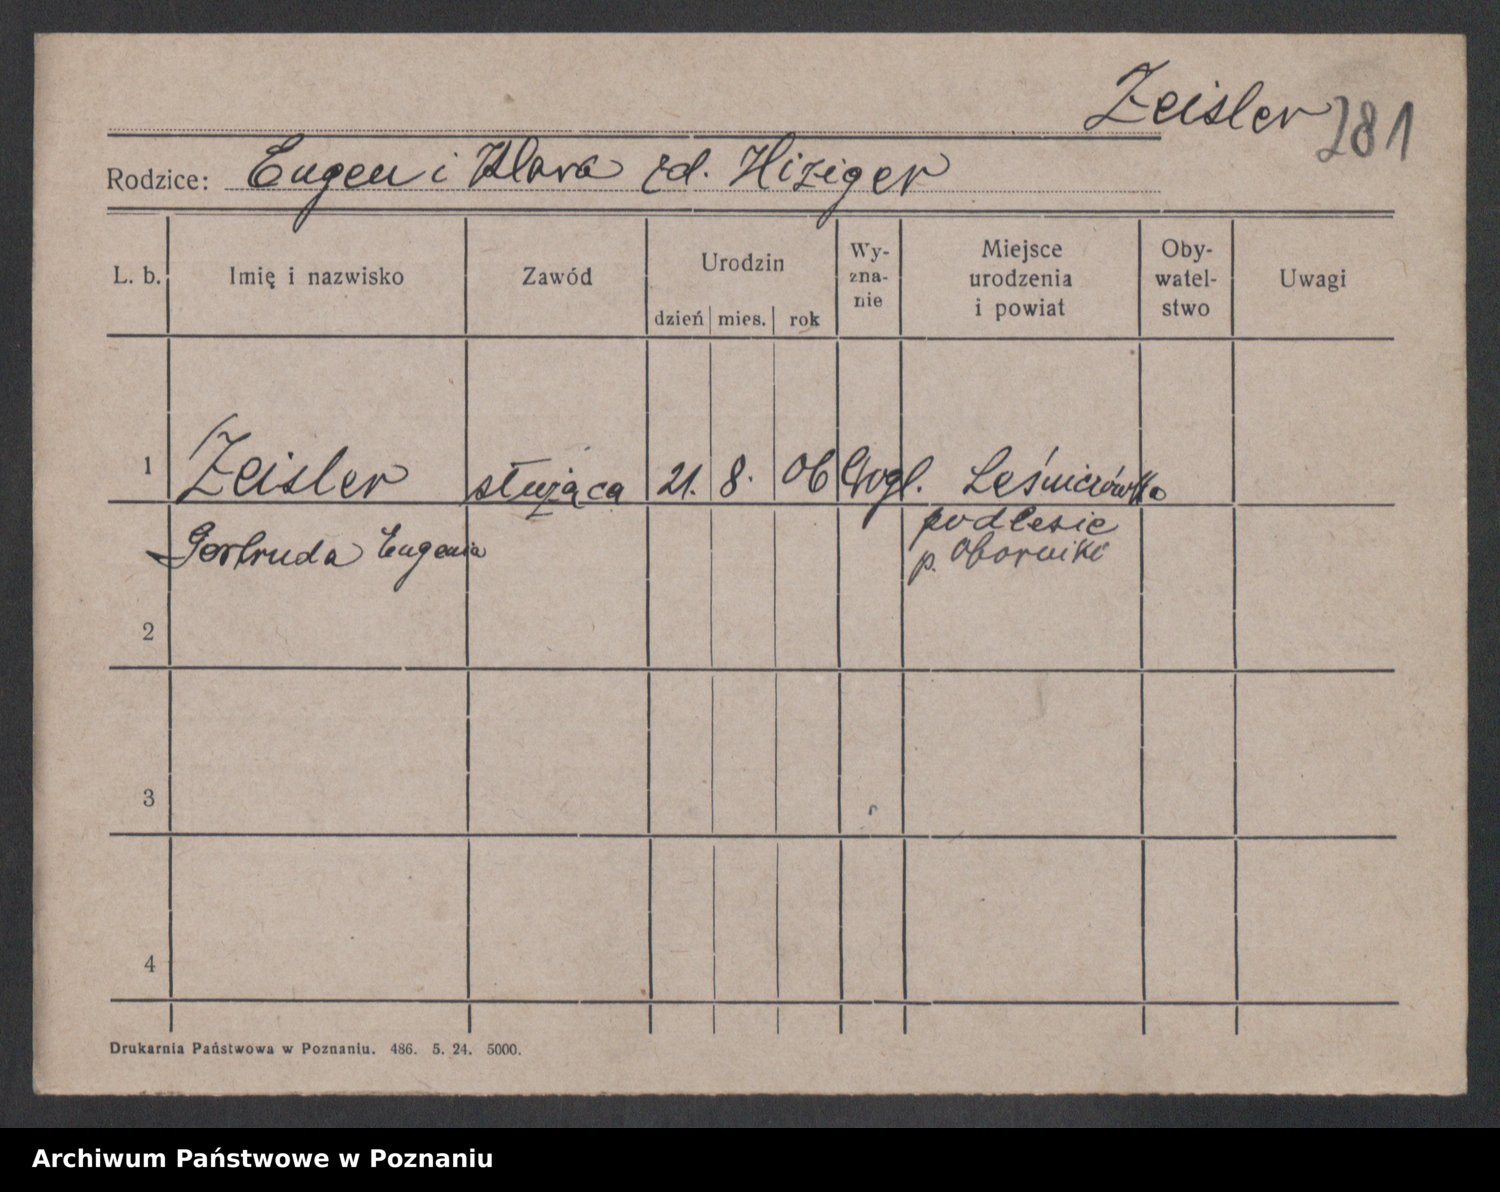 Zeisler 281
Rodzice: Eugen i Klara zd. Hiziger
L. b. Imię i nazwisko Zawód Urodzin dzień mies. rok Wy-zna-nie Miejsce urodzenia i powiat Oby-watel-stwo Uwagi
1 Zeisler służąca 21. 8. 06 Ewgl. Leśniczówka
podlesie
Gertruda Eugenia p. Oborniki
2
3
4
Drukarnia Państwowa w Poznaniu. 486. 5. 24. 5000.
Archiwum Państwowe w Poznaniu